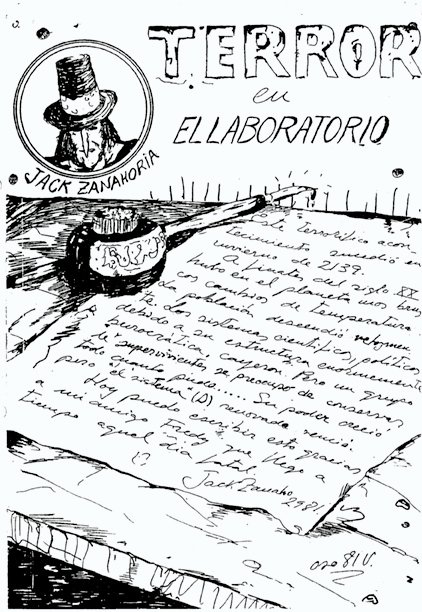 TERROR
en
EL LABORATORIO
JACK ZANAHORIA
Este terrorífico acon
tecimiento sucedió en
invierno de 2139.
A finales del siglo XX
hubo en el planeta unos brus
cos cambios de temperatura
la población descendió
te los sistemas científico, político,
debido a su estructura enormemente
burocrática, cayeron. Pero un grupo
de supervivientes, se preocupo de conservar
todo cuanto pudo..... Su poder creció
pero el sistema (D) renovado renció.
Hoy puedo escribir esto gracias
a mi amigo Fredy, que llego a
tiempo aquel día fatal.
Jack Zanaho
2981
81 V.